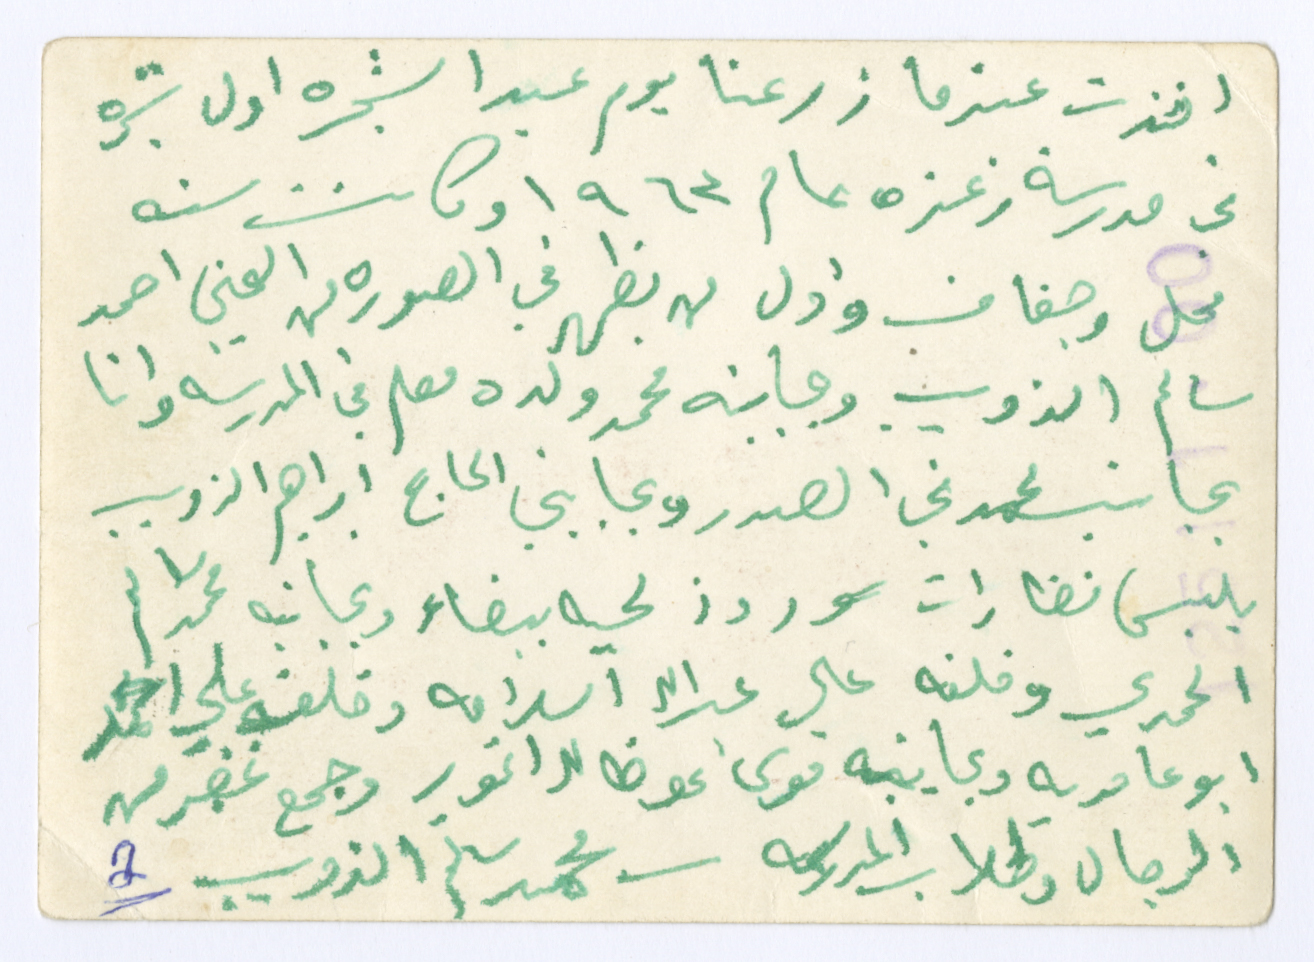 اخذت عندما زرعنا يوم عيد الشجره اول شجره
في مدرسة زعزه عام ١٩٦٣ وكانت سنه
محل وجفاف واول من يظهر في الصوره من اليمين احمد
سالم الذويب وبجانبه محمد ولده معلم في المدرسه وانا
بجانب محمد في الصدر وبجانبي الحاج ابراهيم الذويب
يلبس نظارات سود وذ لحيه بيضاء وبجانبه محمد سالم
المحمدي وخلفه علي عبدالله اسلامه وخلفه علي احمد
ابو عامريه وبجانبه وجمع غفير من
الرجال وطلاب المدرسه – محمد سالم الذويب
2